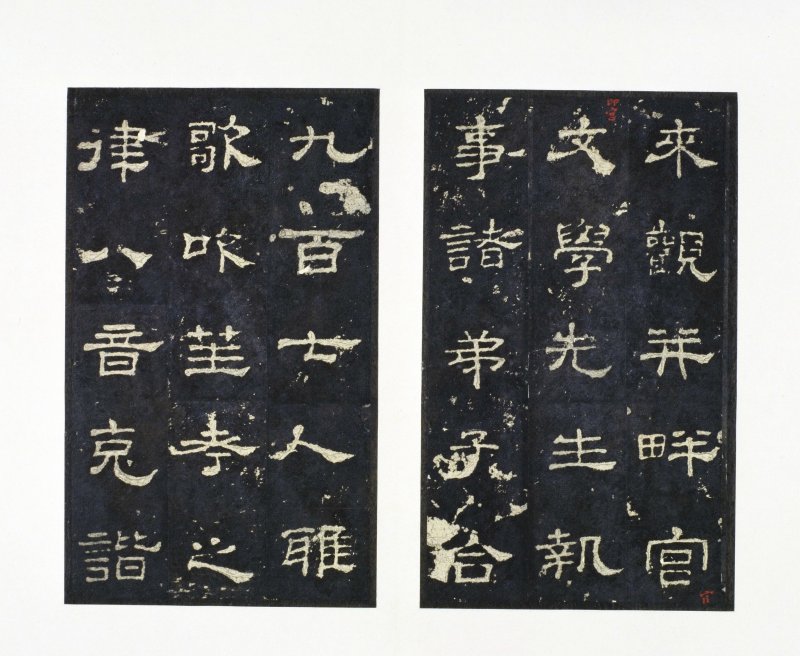 來觀并畔宮
文學先生執
事諸弟子合
九百七人雅
歌吹笙考之
律八音克諧